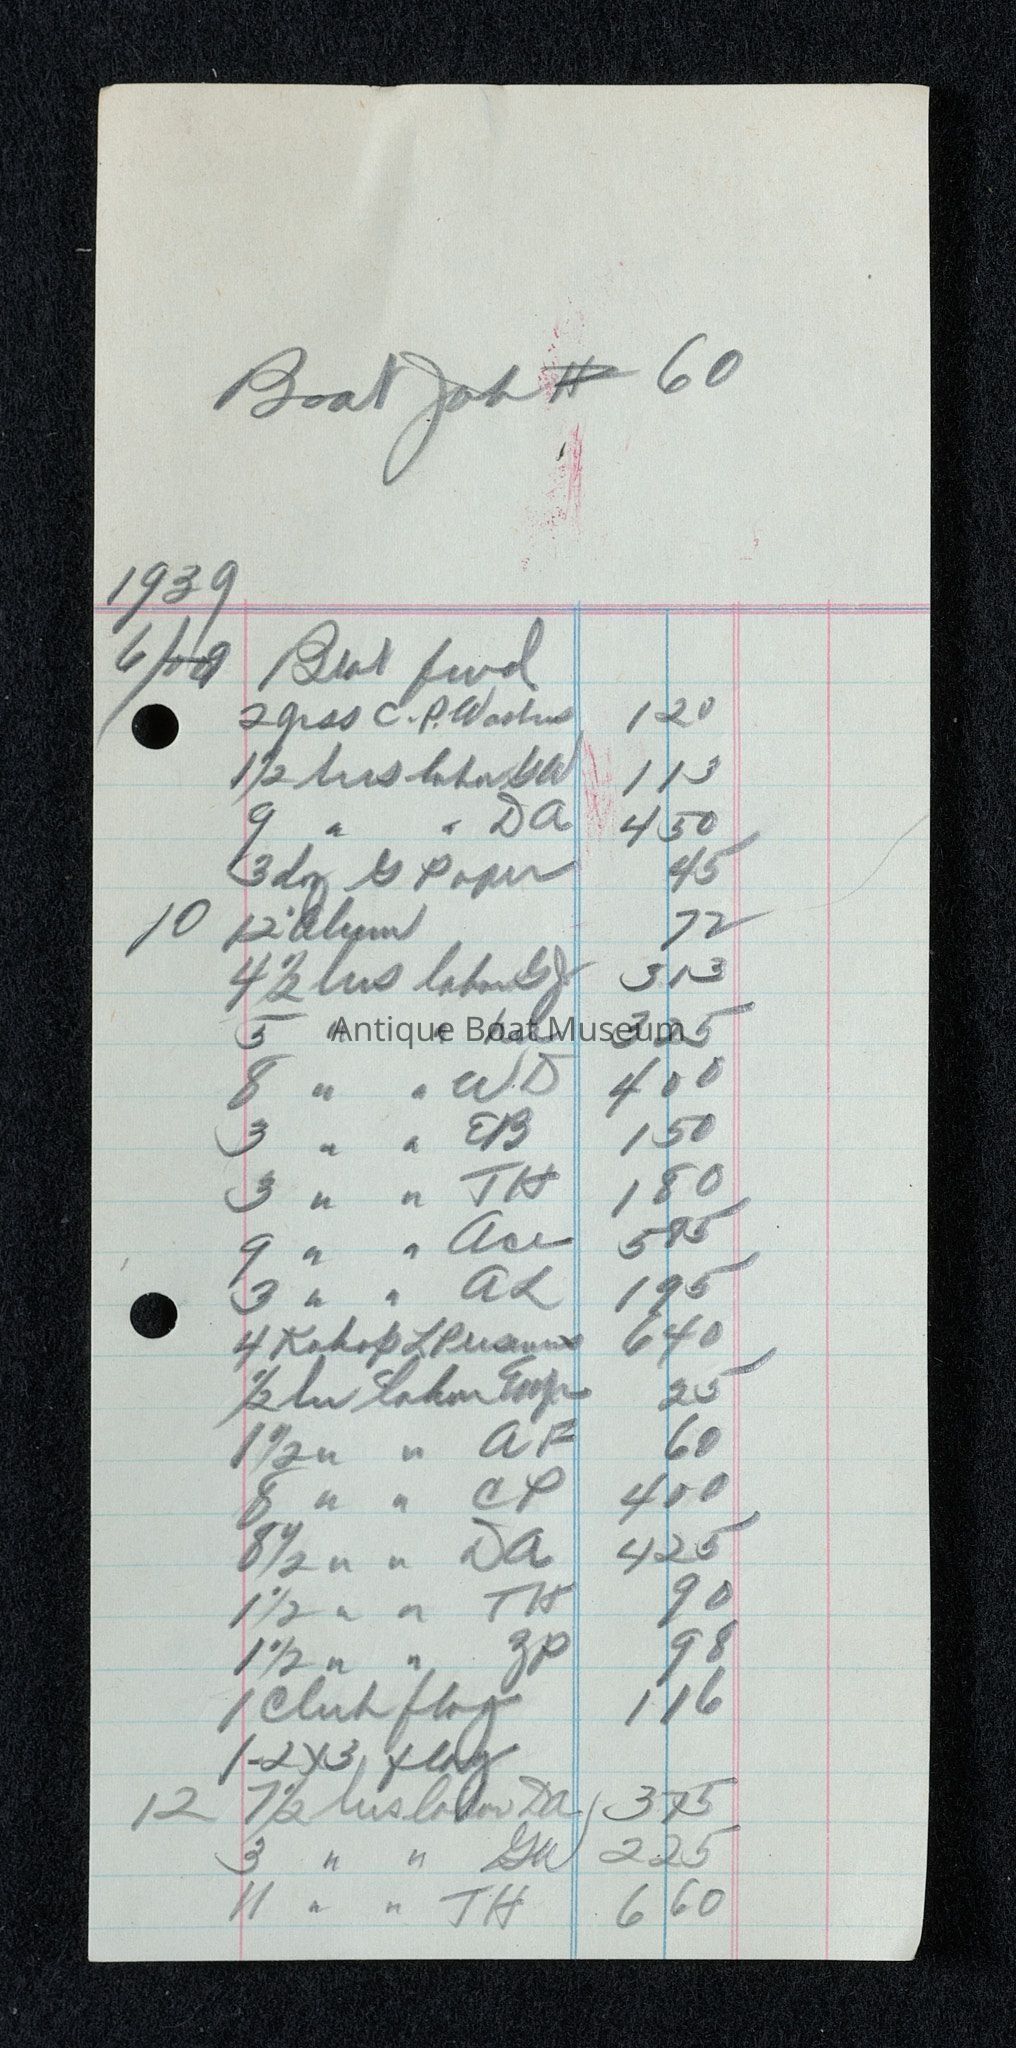 Boat Job # 60
1939
6/9 Boat fwd
2 grss C.P. Washers 120
1 1/2 hrs labor GW 113
9 " " DA 450
3 doz G Paper 45
10 12" Alum 72
4 1/2 hrs labor GJ 313
5 " " 325
8 " " WD 400
3 " " EB 150
3 " " TH 180
9 " " Ace 585
3 " " AL 195
4 L 640
1/2 hr labor 25
1 1/2 " " AF 60
8 " " CP 400
8 1/2 " " DA 425
1 1/2 " " TH 90
1 1/2 " " ZP 98
1 Club flag 116
1-2x3 flag
12 7 1/2 hrs labor DA 375
3 " " GW 225
11 " " TH 660
Antique Boat Museum